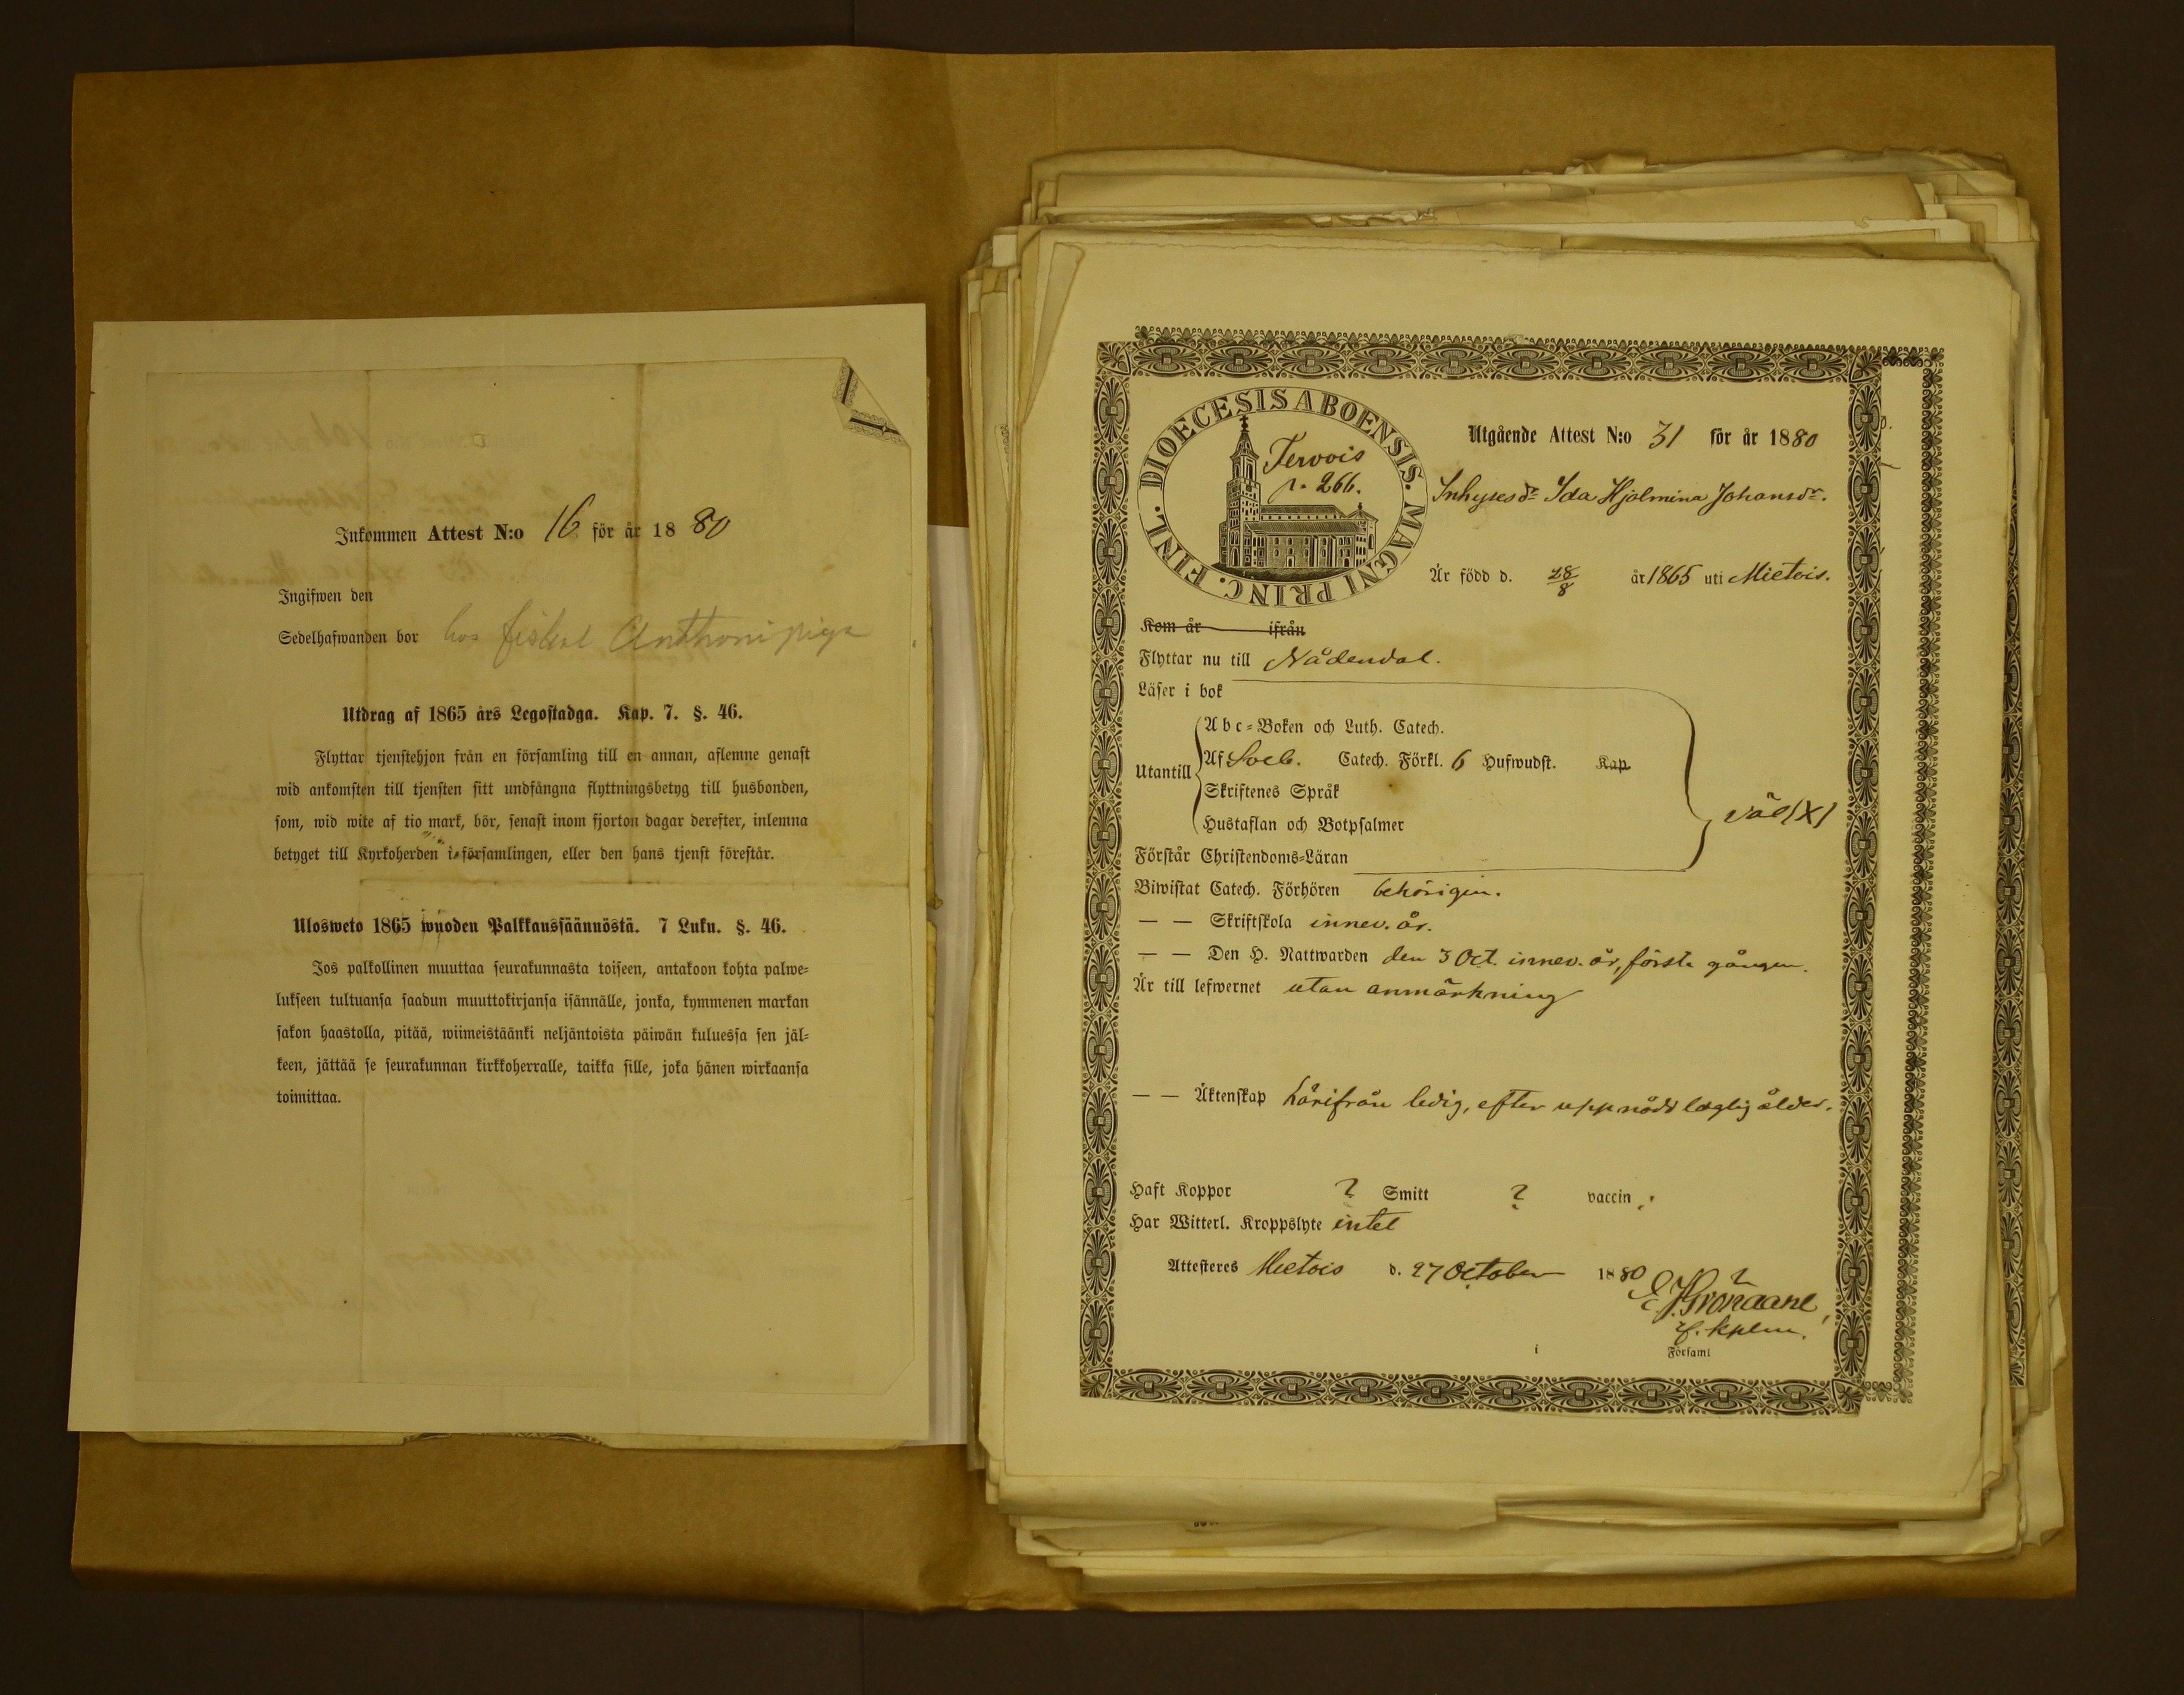 Inkommen Attest N:o 16 för år 1880
Ingifwen den
Sedelhafwanden bor hos fiskal Anthoni piga
Utdrag af 1865 års Legostadga. Kap. 7. §. 46.
Flyttar tjenstehjon från en församling till en annan, aflemne genast
wid ankomsten till tjensten sitt undfångna flyttningsbetyg till husbonden,
som, wid wite af tio mark, bör, senast inom fjorton dagar derefter, inlemna
betyget till Kyrkoherden i församlingen, eller den hans tjenst förestår.
Ulosweto 1865 wuoden Palkkaussäännöstä. 7 Luku. §. 46.
Jos palkollinen muuttaa seurakunnasta toiseen, antakoon kohta palwe-
lukseen tultuansa saadun muuttokirjansa isännälle, jonka, kymmenen markan
sakon haastolla, pitää, wiimeistäänki neljäntoista päiwän kuluessa sen jäl-
keen, jättää se seurakunnan kirkkoherralle, taikka sille, joka hänen wirkaansa
toimittaa.
DIOECESIS ABOENSIS. MAGNI PRINC. FINL.
Tervois
p. 266.
Utgående Attest N:o 31 för år 1880
Inhyses dr Ida Hjalmina Johansdr.
Är född d. 28/8 år 1865 uti Mietois.
Kom år ifrån
Flyttar nu till Nådendal.
Läser i bok
Utantill
Abc-Boken och Luth. Catech.
Af Sveb. Catech. Förkl. 6 Hufwudst. Kap
Skriftenes Språk
Hustaflan och Botpsalmer
Förstår Christendoms-Läran
väl (X)
Biwistat Catech. Förhören behörigen.
— — Skriftskola innev. år.
— — Den H. Nattwarden den 3 Oct. innev. år, första gången.
Är till lefwernet utan anmärkning
— — Äktenskap härifrån ledig, efter uppnådd laglig ålder.
Haft Koppor ? Smitt ? vaccin.
Har Witterl. Kroppslyte intet
Attesteres Mietois d. 27 October 1880
v. kplm.
i Församl